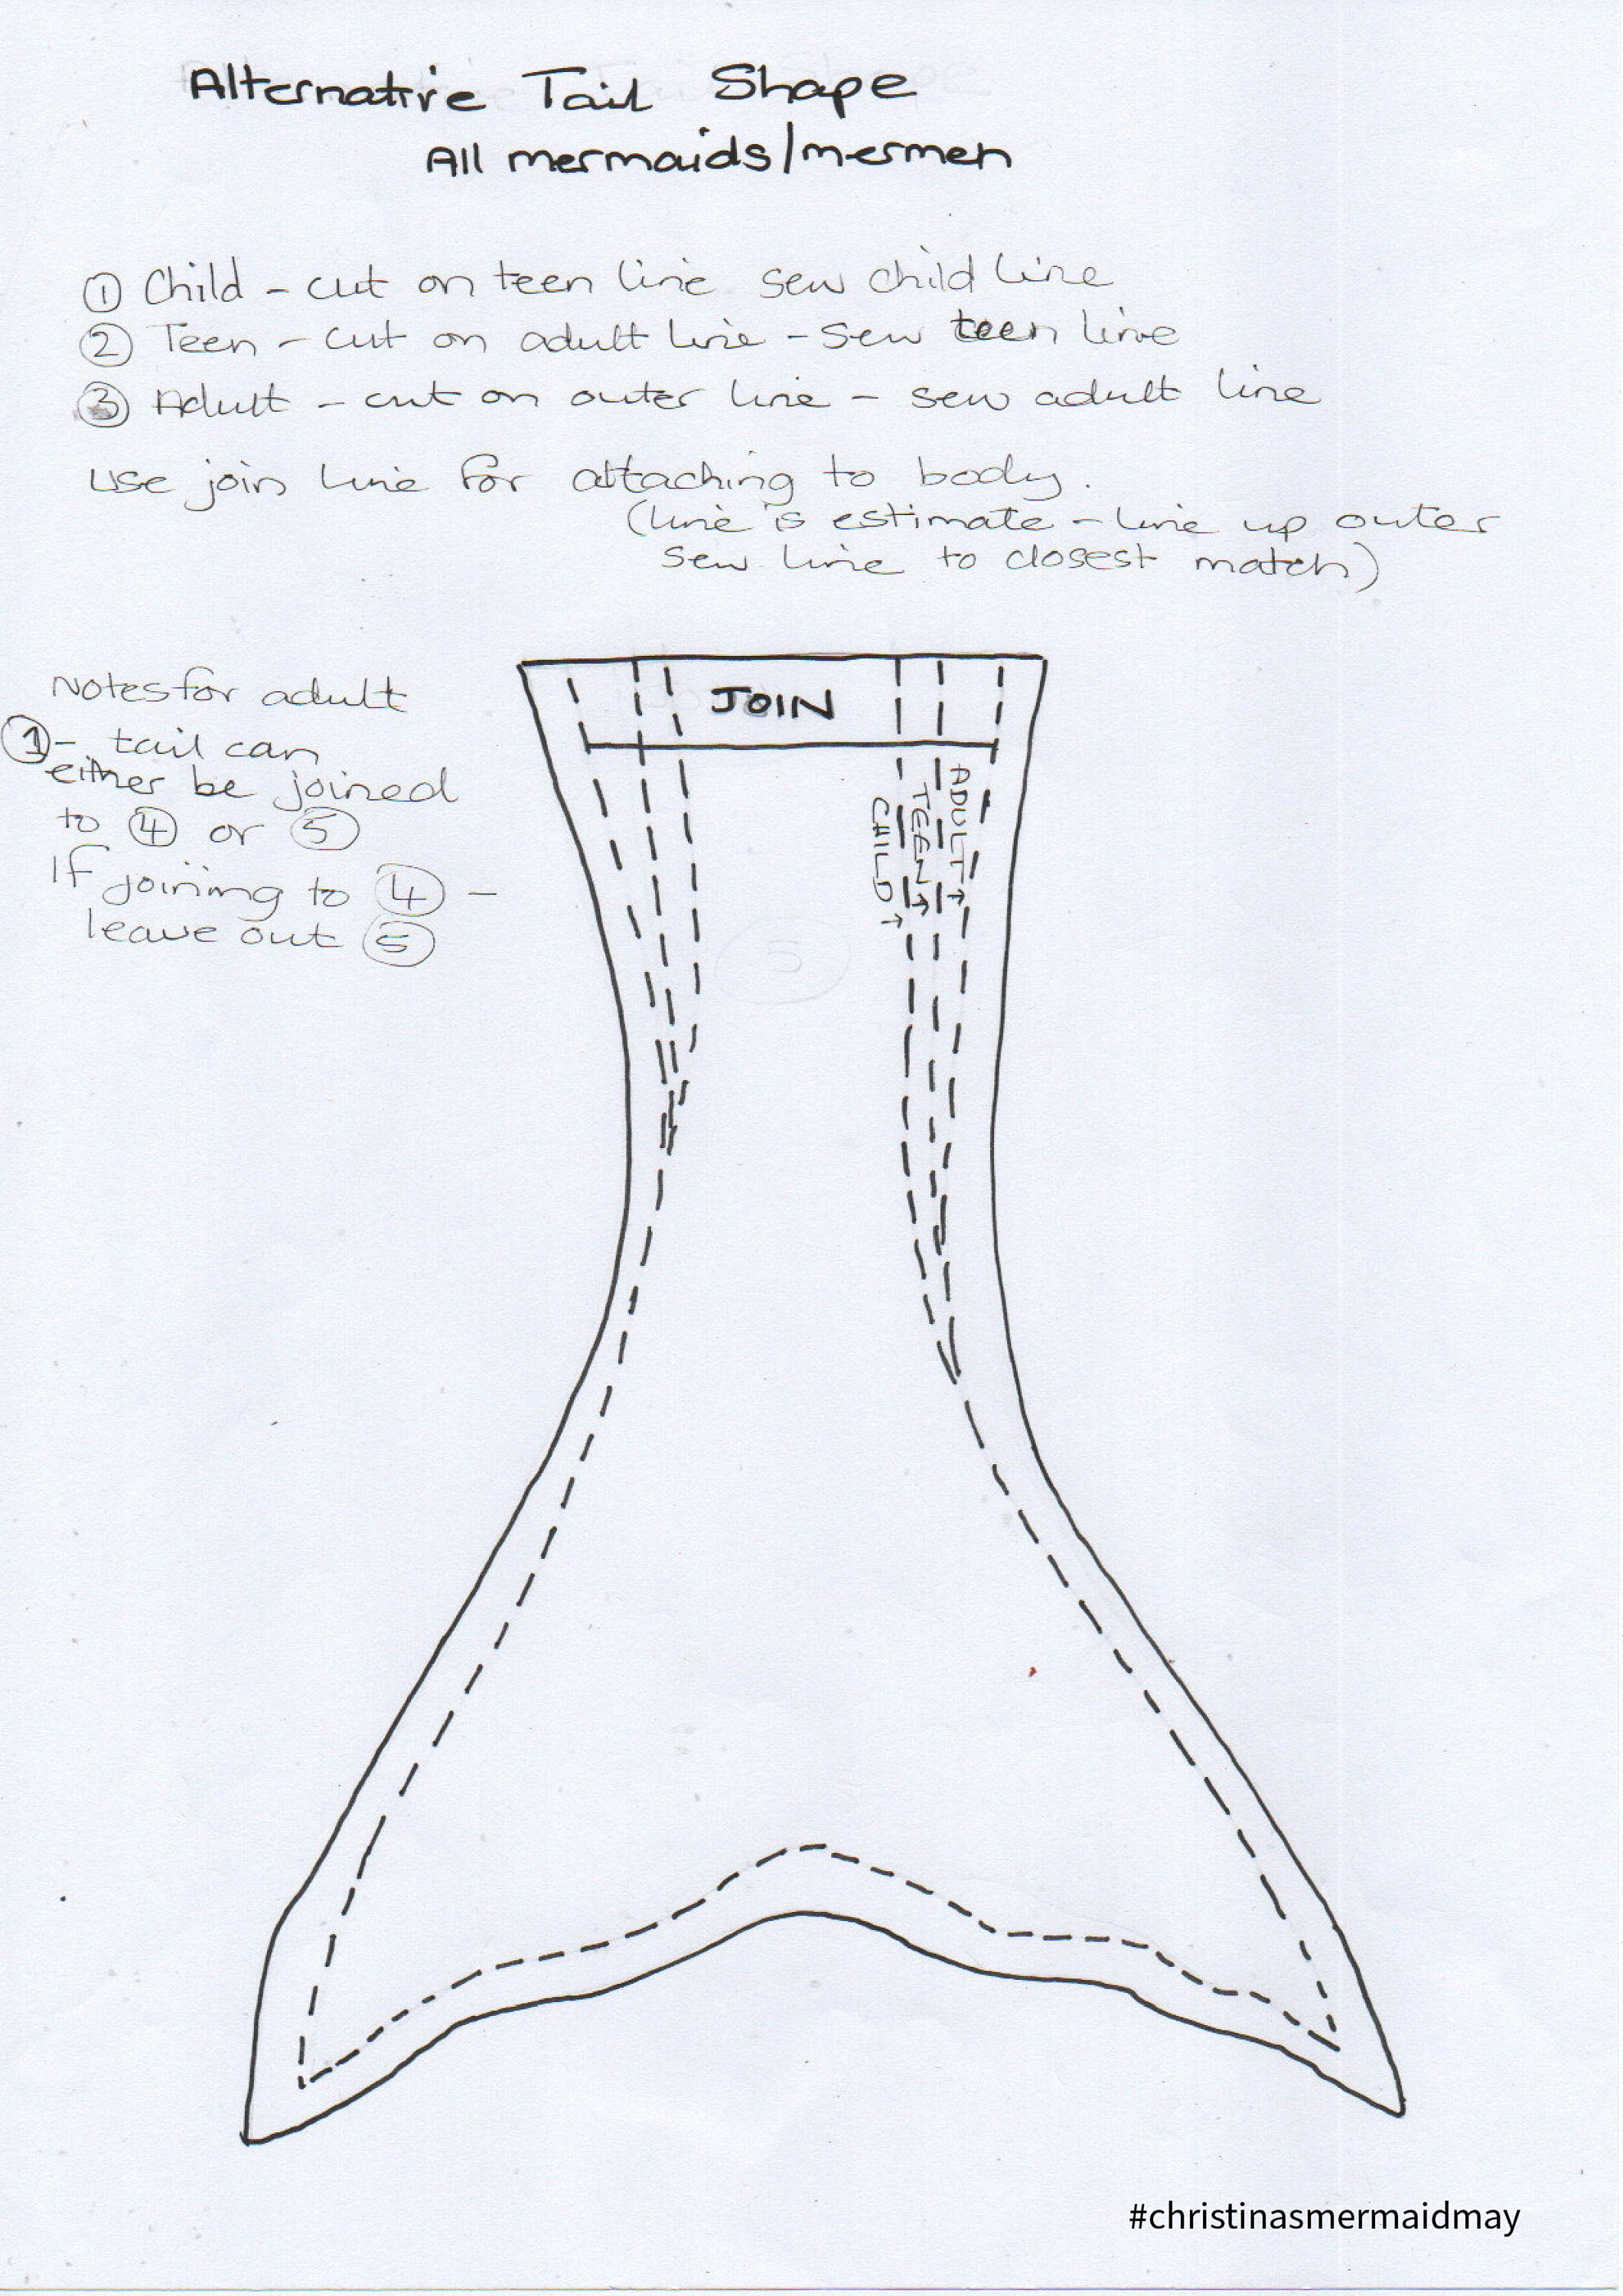 Alternative Tail Shape
All mermaids/mermen
① Child - cut on teen line sew child line
② Teen - cut on adult line - sew teen line
③ Adult - cut on outer line - sew adult line
use join line for attaching to body.
(line is estimate - line up outer
sew line to closest match)
Notes for adult
① - tail can
either be joined
to ④ or ⑤
If joining to ④ -
leave out ⑤
JOIN
ADULT↑
TEEN↑
CHILD↑
#christinasmermaidmay